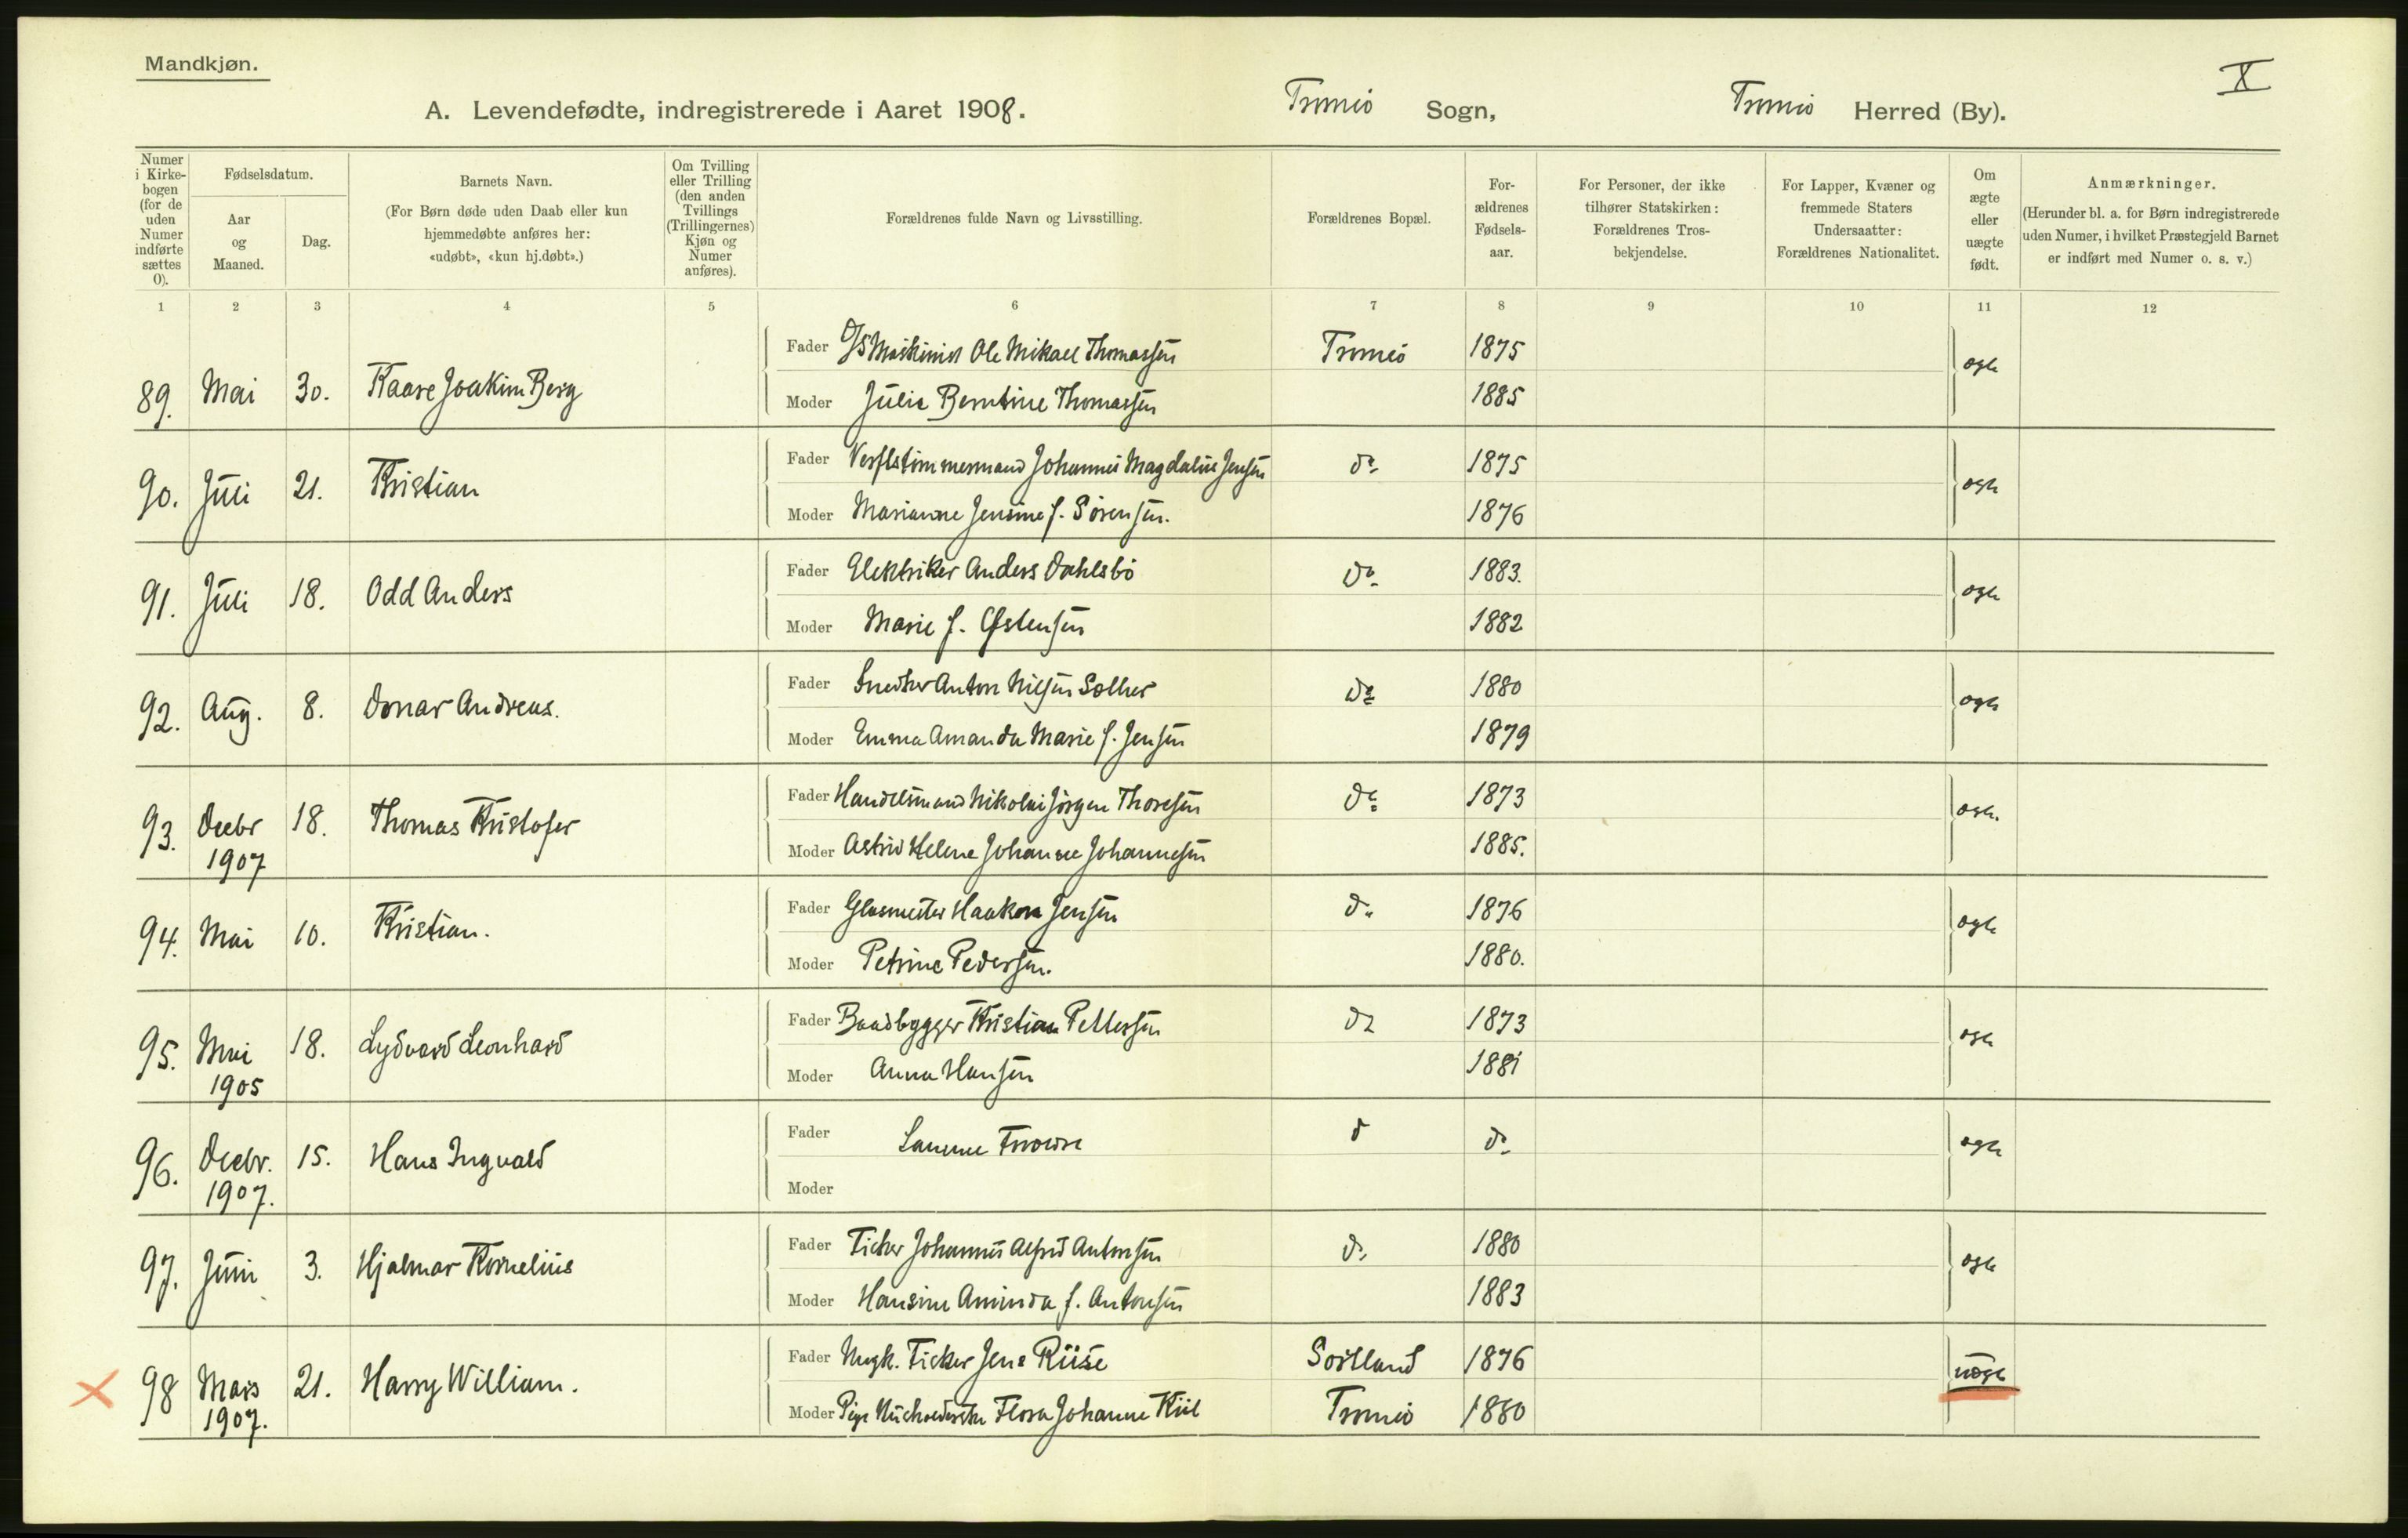 Mandkjøn.
X
A. Levendefødte, indregistrerede i Aaret 1908. Tromsø Sogn, Tromsø Herred (By).
Numer i Kirkebogen (for de uden Numer indførte sættes 0).
Fødselsdatum.
Aar og Maaned.
Dag.
Barnets Navn.
(For Børn døde uden Daab eller kun hjemmedøbte anføres her: «udøbt», «kun hj.døbt».)
Om Tvilling eller Trilling (den anden Tvillings (Trillingernes) Kjøn og Numer anføres).
Forældrenes fulde Navn og Livsstilling.
Forældrenes Bopæl.
Forældrenes Fødselsaar.
For Personer, der ikke tilhører Statskirken: Forældrenes Trosbekjendelse.
For Lapper, Kvæner og fremmede Staters Undersaatter: Forældrenes Nationalitet.
Om ægte eller uægte født.
Anmærkninger.
(Herunder bl. a. for Børn indregistrerede uden Numer, i hvilket Præstegjeld Barnet er indført med Numer o. s. v.)
1 2 3 4 5 6 7 8 9 10 11 12
Fader D/S Maskinist Ole Mikael Thomassen Tromsø 1875
89. Mai 30. Kaare Joakim Berg ægte
Moder Julie Berntine Thomassen 1885
Fader Verftstømmermand Johannes Magdalius Jensen do 1875
90. Juli 21. Kristian ægte
Moder Marianne Jensine f. Sørensen. 1876
Fader Elektriker Anders Dahlsbø do 1883.
91. Juli 18. Odd Anders ægte
Moder Marie f. Østensen 1882
Fader Snedker Anton Nilsen Solher do 1880
92. Aug. 8. Donar Andreas. ægte
Moder Emma Amanda Marie f. Jensen 1879
Fader Handelsmand Nikolai Jørgen Thoresen do 1873
93. Decbr 1907 18. Thomas Kristofer ægte.
Moder Astrid Helene Johanne Johannesen 1885.
Fader Glasmester Haakon Jensen do 1876
94. Mai 10. Kristian. ægte
Moder Petrine Pedersen. 1880.
Fader Baadbygger Kristian Pettersen do 1873
95. Mai 1905 18. Lydvard Leonhard ægte
Moder Anna Hansen 1881
Fader Samme Forældre d do
96. Decbr. 1907. 15. Hans Ingvald ægte
Moder
Fader Fisker Johannes Alfred Antonsen do 1880
97. Juni 3. Hjalmar Kornelius ægte
Moder Hansine Aminda f. Antonsen 1883
Fader Ungk. Fisker Jens Riise Sortland 1876
98 Mars 1907. 21. Harry William. uægte
Moder Pige Flora Johanne Kiil Tromsø 1880